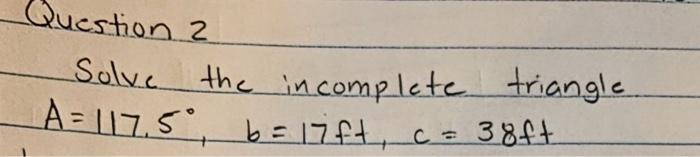 Question 2
Solve the incomplete triangle
A = 117.5°, b = 17ft, c = 38ft